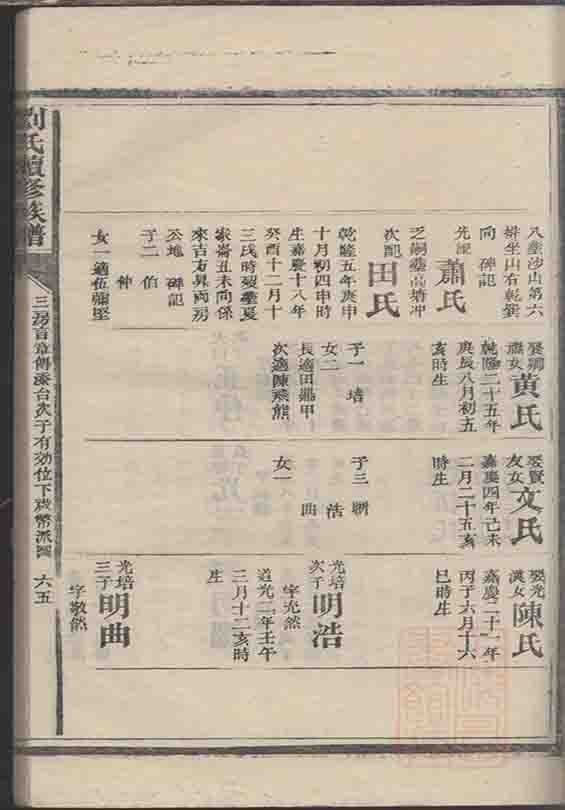 八壟沙山第六
坐山右乾巽
向碑記
元配
蕭氏
乏嗣塟高塘冲
次配
田氏
乾隆五年庚申
十月初四申時
生嘉慶十八年
癸酉十二月十
三戌時歿塟夏
家崙丑未向係
來吉方昇向房
公地碑記
子二 伯
仲
女一適伍
娶
女
黃氏
乾隆二十五年
庚辰八月初五
亥時生
子一 培
女二
長適田鼎甲
次適陳飛熊
娶賢
友女
文氏
嘉慶四年己未
二月二十五亥
時生
子三
浩
曲
女一
娶光
漢女
陳氏
嘉慶二十一年
丙子六月十六
巳時生
光培
次子
明浩
字充然
道光二年壬午
三月十二亥時
生
光培
三子
明曲
字敬然
劉氏續修族譜
三房言章傳添台次子有効位下裁幣派圖
六五